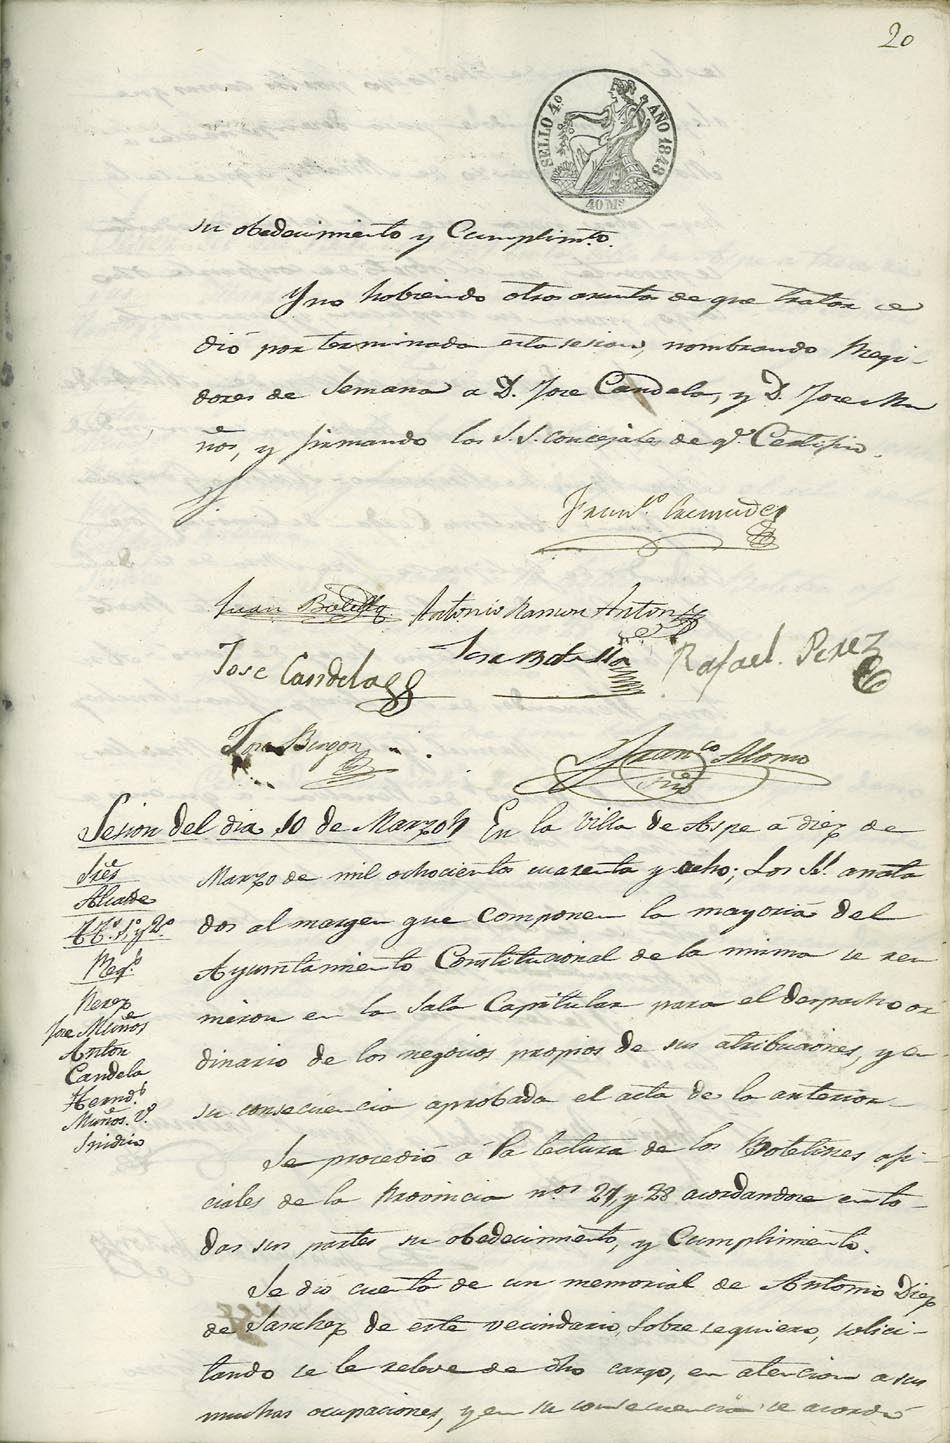 20
SELLO 4º AÑO 1848
40 Ms
su obedecimiento y Cumplimto.
Y no habiendo otros asuntos de que tratar se
dió por terminada esta sesion, nombrando Regi-
dores de Semana a D. Jose Candela, y D. Jose Mu
ños, y firmando los S.S. concejales de qe. Certifico.
Franco
Juan Antonio Ramon Anton
Jose Candela Jose Botella Rafael Perez
Jose Franco Alonso
Srio
Sesion del dia 10 de Marzo En la Villa de Aspe á diez de
Marzo de mil ochocientos cuarenta y ocho; Los SS. anota
dos al margen que componen la mayoria del
Ayuntamiento Constitucional de la misma se reu
nieron en la Sala Capitular para el despacho or
dinario de los negocios propios de sus atribuciones, y en
su consecuencia aprobada el acta de la anterior
Sres
Alcalde
TTs. 1º y 2º
Regs
Perez
Jose Muños
Anton
Candela
Hernds
Muños. Vº
Sindico
Se procedió á la lectura de los Boletines ofi-
ciales de la Provincia nos 27, y 28 acordandose en to-
das sus partes su obedecimiento, y Cumplimiento.
Se dió cuenta de un memorial de Antonio Diez
de Sanchez de este vecindario, sobre sequiero, solici-
tando se le releve de dho cargo, en atencion a sus
muchas ocupaciones, y en su consecuencia se acordó